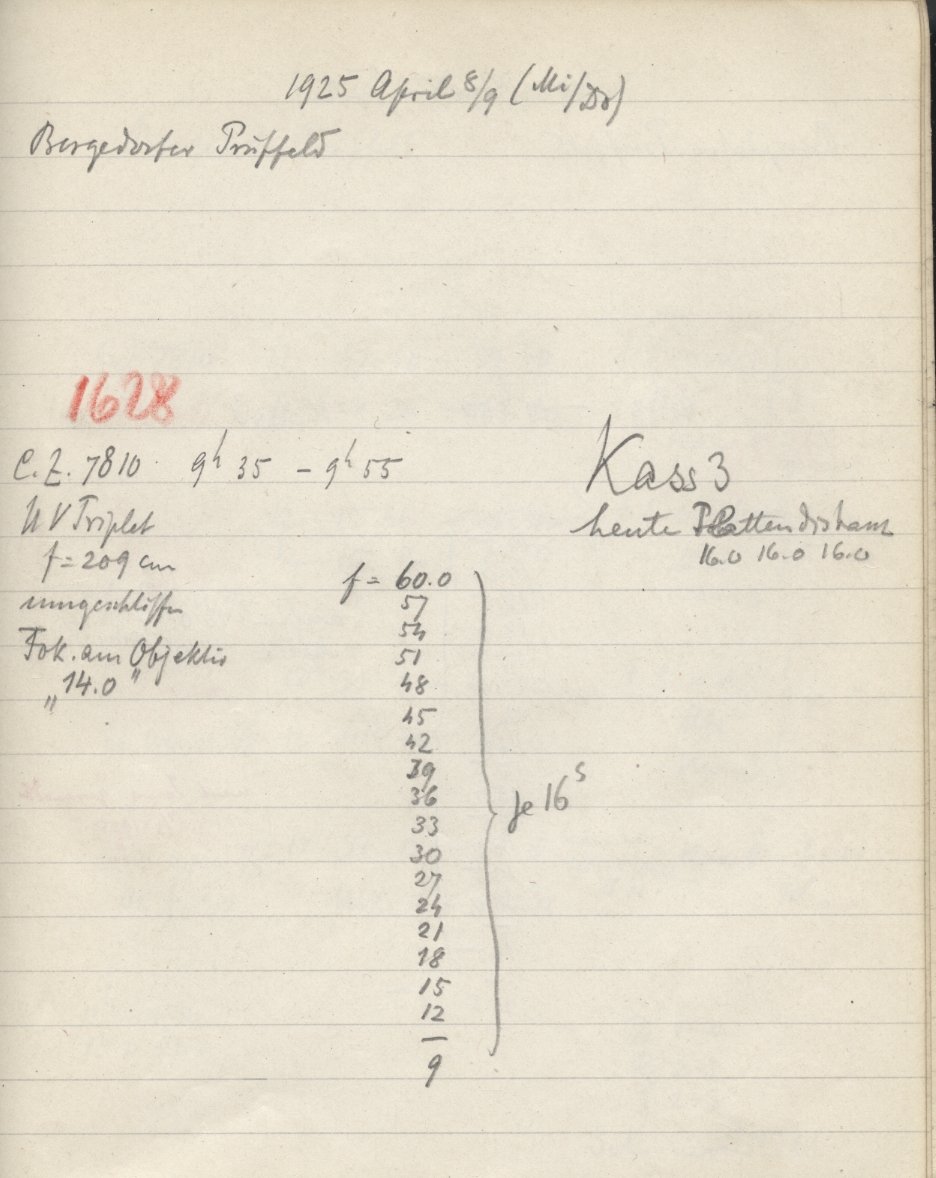 1925 April 8/9 (Mi/Do)
Bergedorfer Prüffeld
1628
C.Z. 7810 9h 35 – 9h 55
Kass 3
UV Triplet
heute Plattendistanz
16.0 16.0 16.0
f = 209 cm
umgeschliffen
Fok. am Objektiv
„14.0"
f = 60.0
57
54
51
48
45
42
39
36
33
30
27
24
21
18
15
12
—
9
je 16s